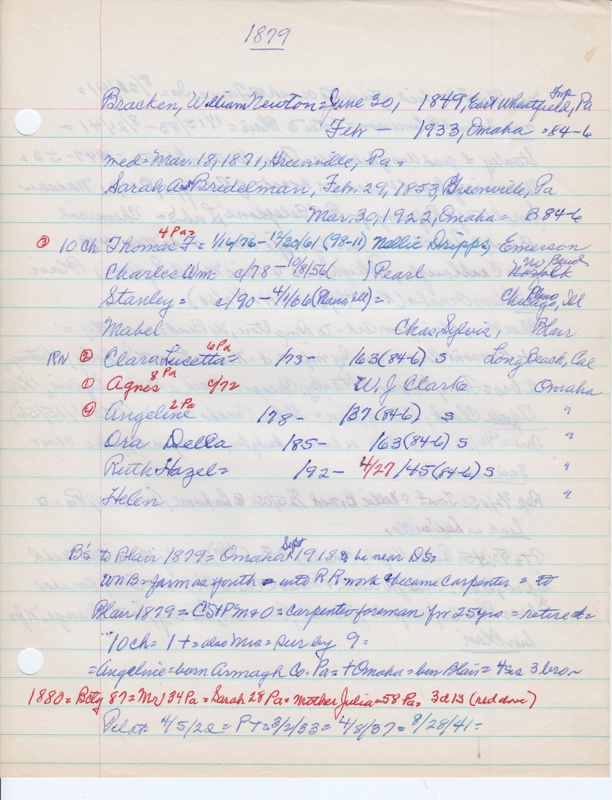 1879
Bracken, William Newton = June 30, 1849, East Wheatfield, Twp Pa
Feb - 1933, Omaha = 84-6
med = Mar. 18, 1871, Greenville, Pa =
Sarah A = Bridelman, Feb. 29, 1853, Greenville, Pa
Mar. 30, 1922, Omaha = B 84-6
③ 10 Ch Thomas F = 4 Pa = 1/16/76 - 12/30/61 (98-11) Nellie Dripps, Emerson
Charles Wm c/78 - 10/8/56 ) Pearl Norfolk
Stanley = c/90 - 4/1/66 (Plano, Ill) = Chicago, Ill Plano
Mabel Chas, Sylvis, Blair
RN ② Clara Lucetta = 6 Pa /73 - /63 (84-6) s Long Beach, Cal
① Agnes 8 Pa c/72 W. J. Clarke Omaha
④ Angeline 2 Pa /78 - /37 (84-6) s "
Ora Della /85 - /63 (84-6) s "
Ruth Hazel = /92 - 4/27/45 (84-6) s "
Helen "
B's to Blair 1879 = Omaha Sept 1918 to be near D's
WNB = farm as youth = into RR work & became carpenter =
Blair 1879 = CStPM&O = carpenter foreman for 25 yrs = retired =
10 ch = 1 + = also Mrs = sur by 9 =
= Angeline = born Armagh Co. Pa = + Omaha = bur Blair = 4 sis 3 bro ~
1880 = Bctg 87 = Mr 34 Pa = Sarah 28 Pa = Mother Julia = 58 Pa = 3 d 1 s (red one)
Pilot = 4/5/22 = PT = 3/2/33 = 4/8/37 = 8/28/41 =